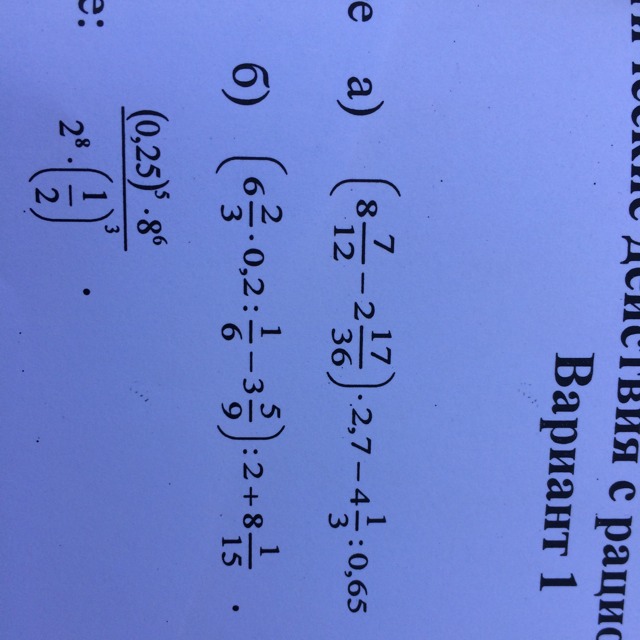 действия с
Вариант 1
е а) (8 7/12 − 2 17/36) · 2,7 − 4 1/3 : 0,65
б) (6 2/3 · 0,2 : 1/6 − 3 5/9) : 2 + 8 1/15 .
е:
(0,25)⁵ · 8⁶ / 2⁸ · (1/2)³ .